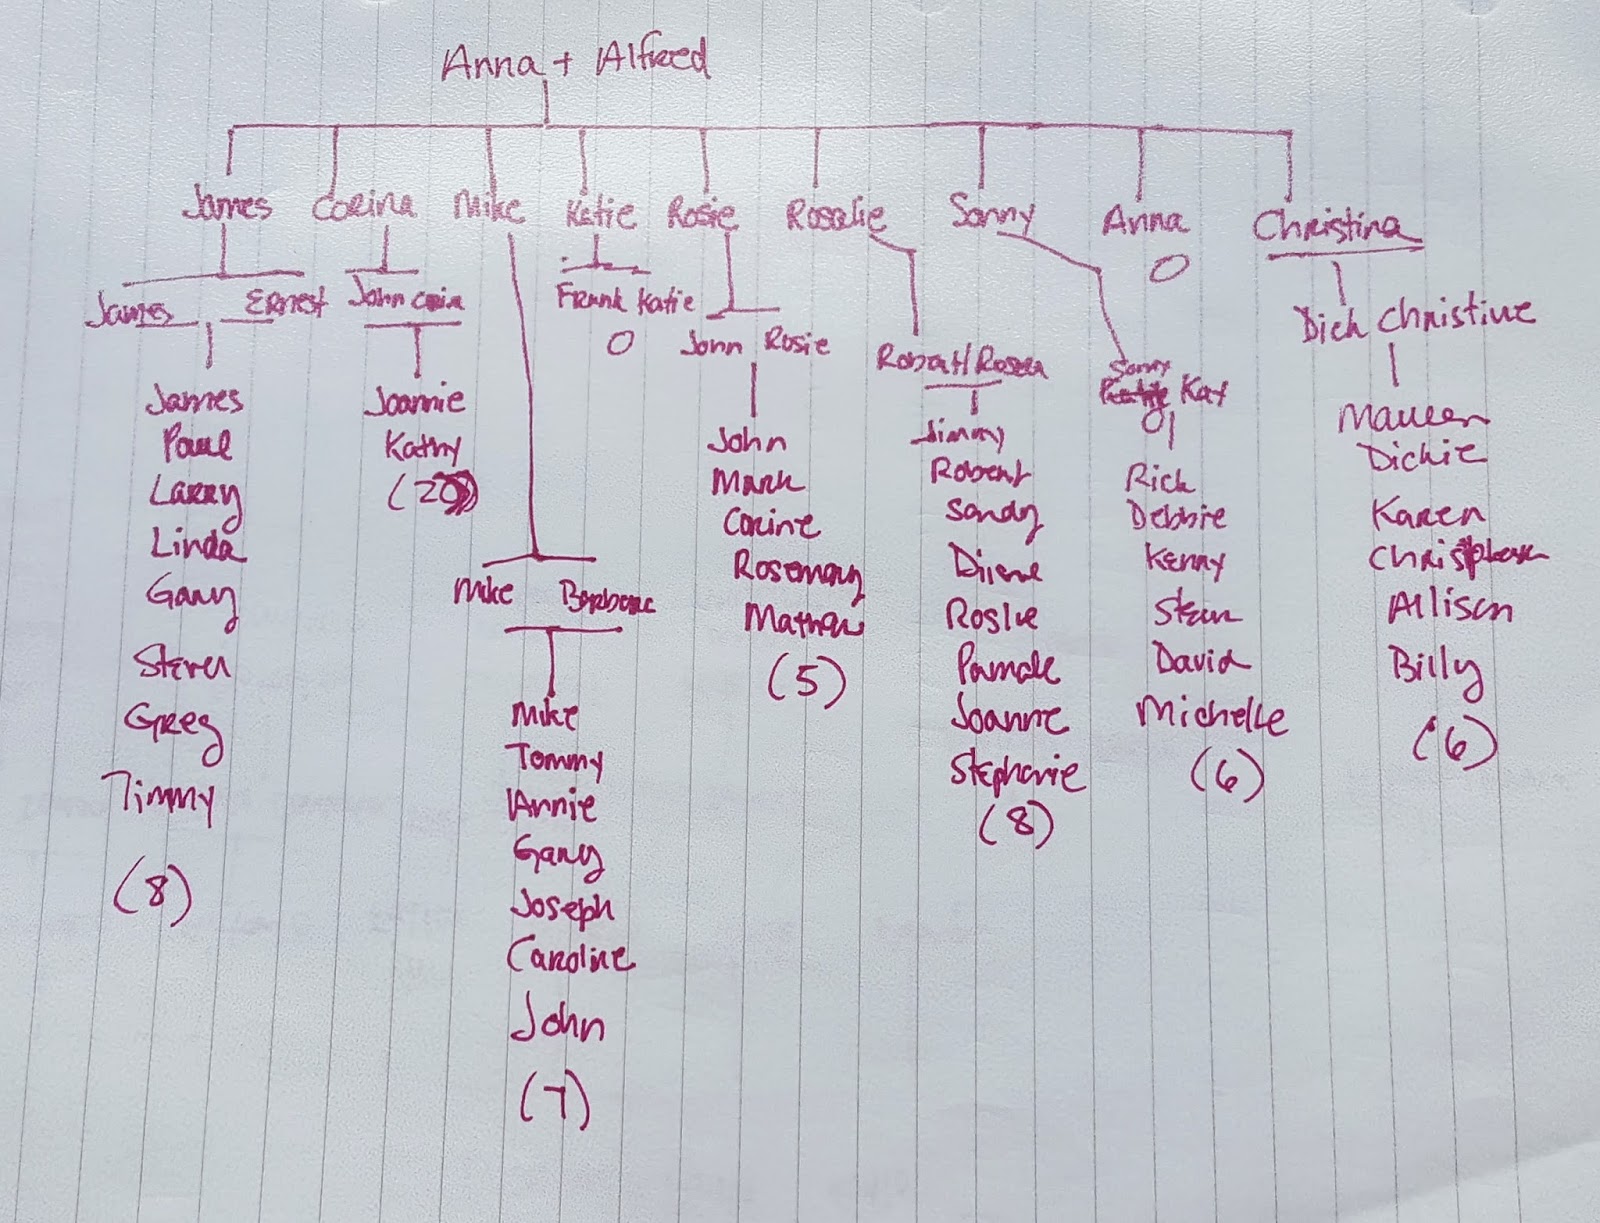 Anna + Alfred
James Corina Mike Katie Rosie Rosalie Sonny Anna Christina
O
James Ernest
James
Paul
Larry
Linda
Gary
Steven
Greg
Timmy
(8)
John
Joannie
Kathy
(2)
Mike Barbara
Mike
Tommy
Annie
Gary
Joseph
Caroline
John
(7)
Frank Katie
O
John Rosie
John
Mark
Corine
Rosemary
Mathew
(5)
Robert/
Jimmy
Robert
Sandy
Diane
Joanne
Stephanie
(8)
Sonny
Kay
Rick
Debbie
Kenny
David
Michelle
(6)
Dick Christine
Maureen
Dickie
Karen
Christopher
Allison
Billy
(6)